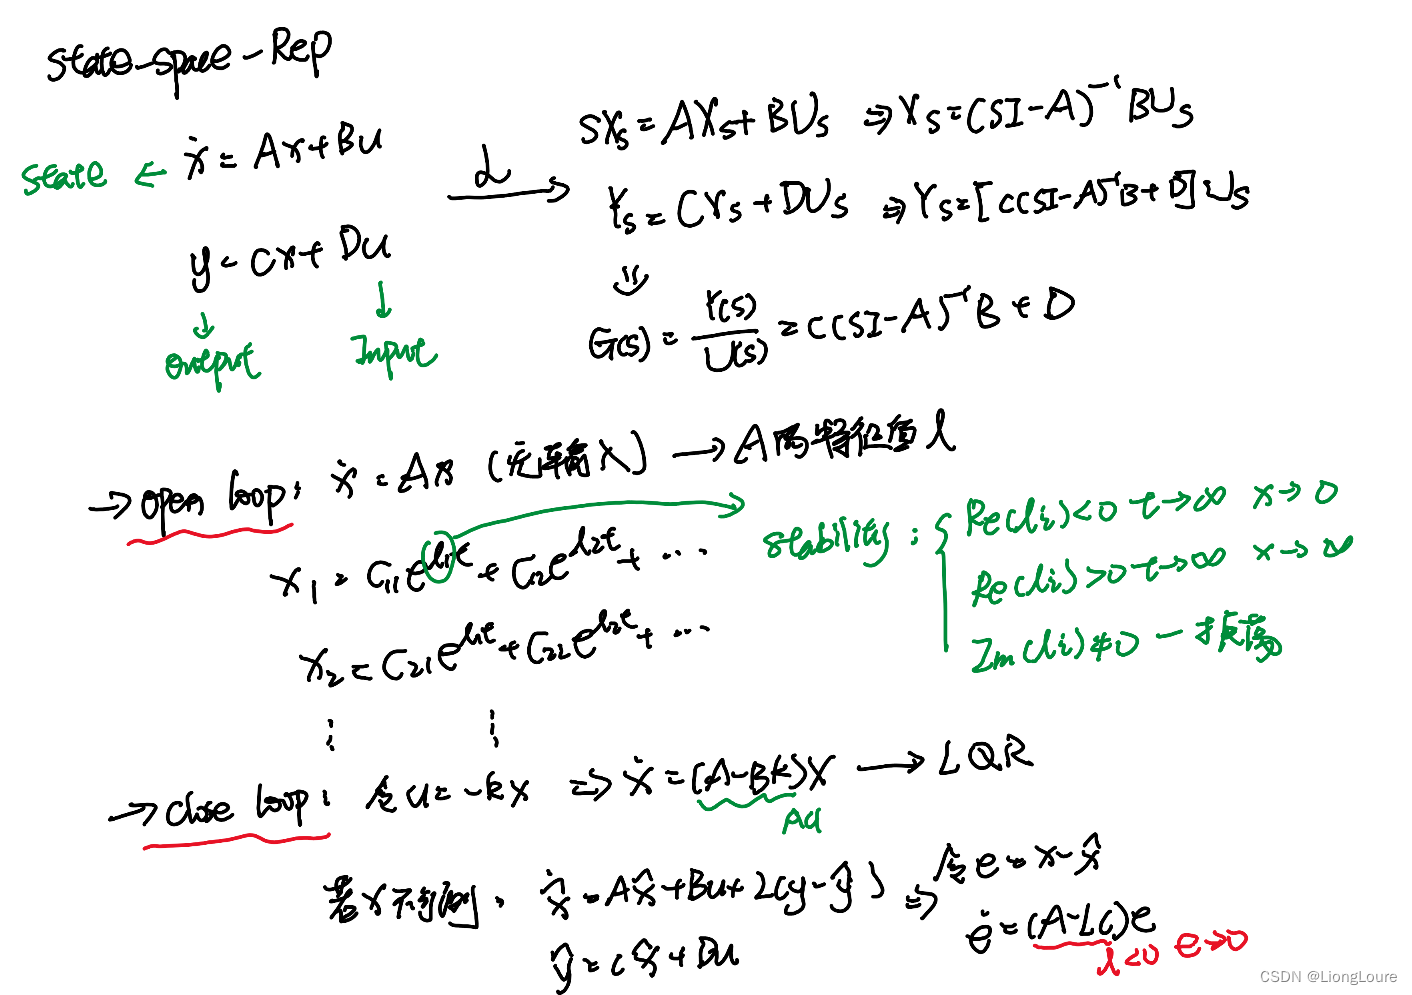 State-space-Rep
ẋ = Ax+Bu
State ←
y = Cx+Du
Output
Input
L
SXs = AXs+BUs ⇒ Xs=(SI-A)⁻¹BUs
Ys = CXs+DUs ⇒ Ys=[C(SI-A)⁻¹B+D]Us
G(s) = Y(s)/U(s) = C(SI-A)⁻¹B+D
→ open loop: ẋ=Ax (无输入) → A的特征值λ
x₁ = C₁₁e^λ₁t + C₁₂e^λ₂t + ...
x₂ = C₂₁e^λ₁t + C₂₂e^λ₂t + ...
⋮ ⋮
stability: {
Re(λi)<0 t→∞ x→0
Re(λi)>0 t→∞ x→∞
Im(λi)≠0 一振荡
→ close loop: 令u=-kx ⇒ ẋ=(A-Bk)x → LQR
Acl
若x不可测, x̂̇=Ax̂+Bu+L(y-ŷ) ⇒ 令e=x-x̂
ŷ=Cx̂+Du
ė=(A-LC)e
λ<0 e→0
CSDN @LiongLoure